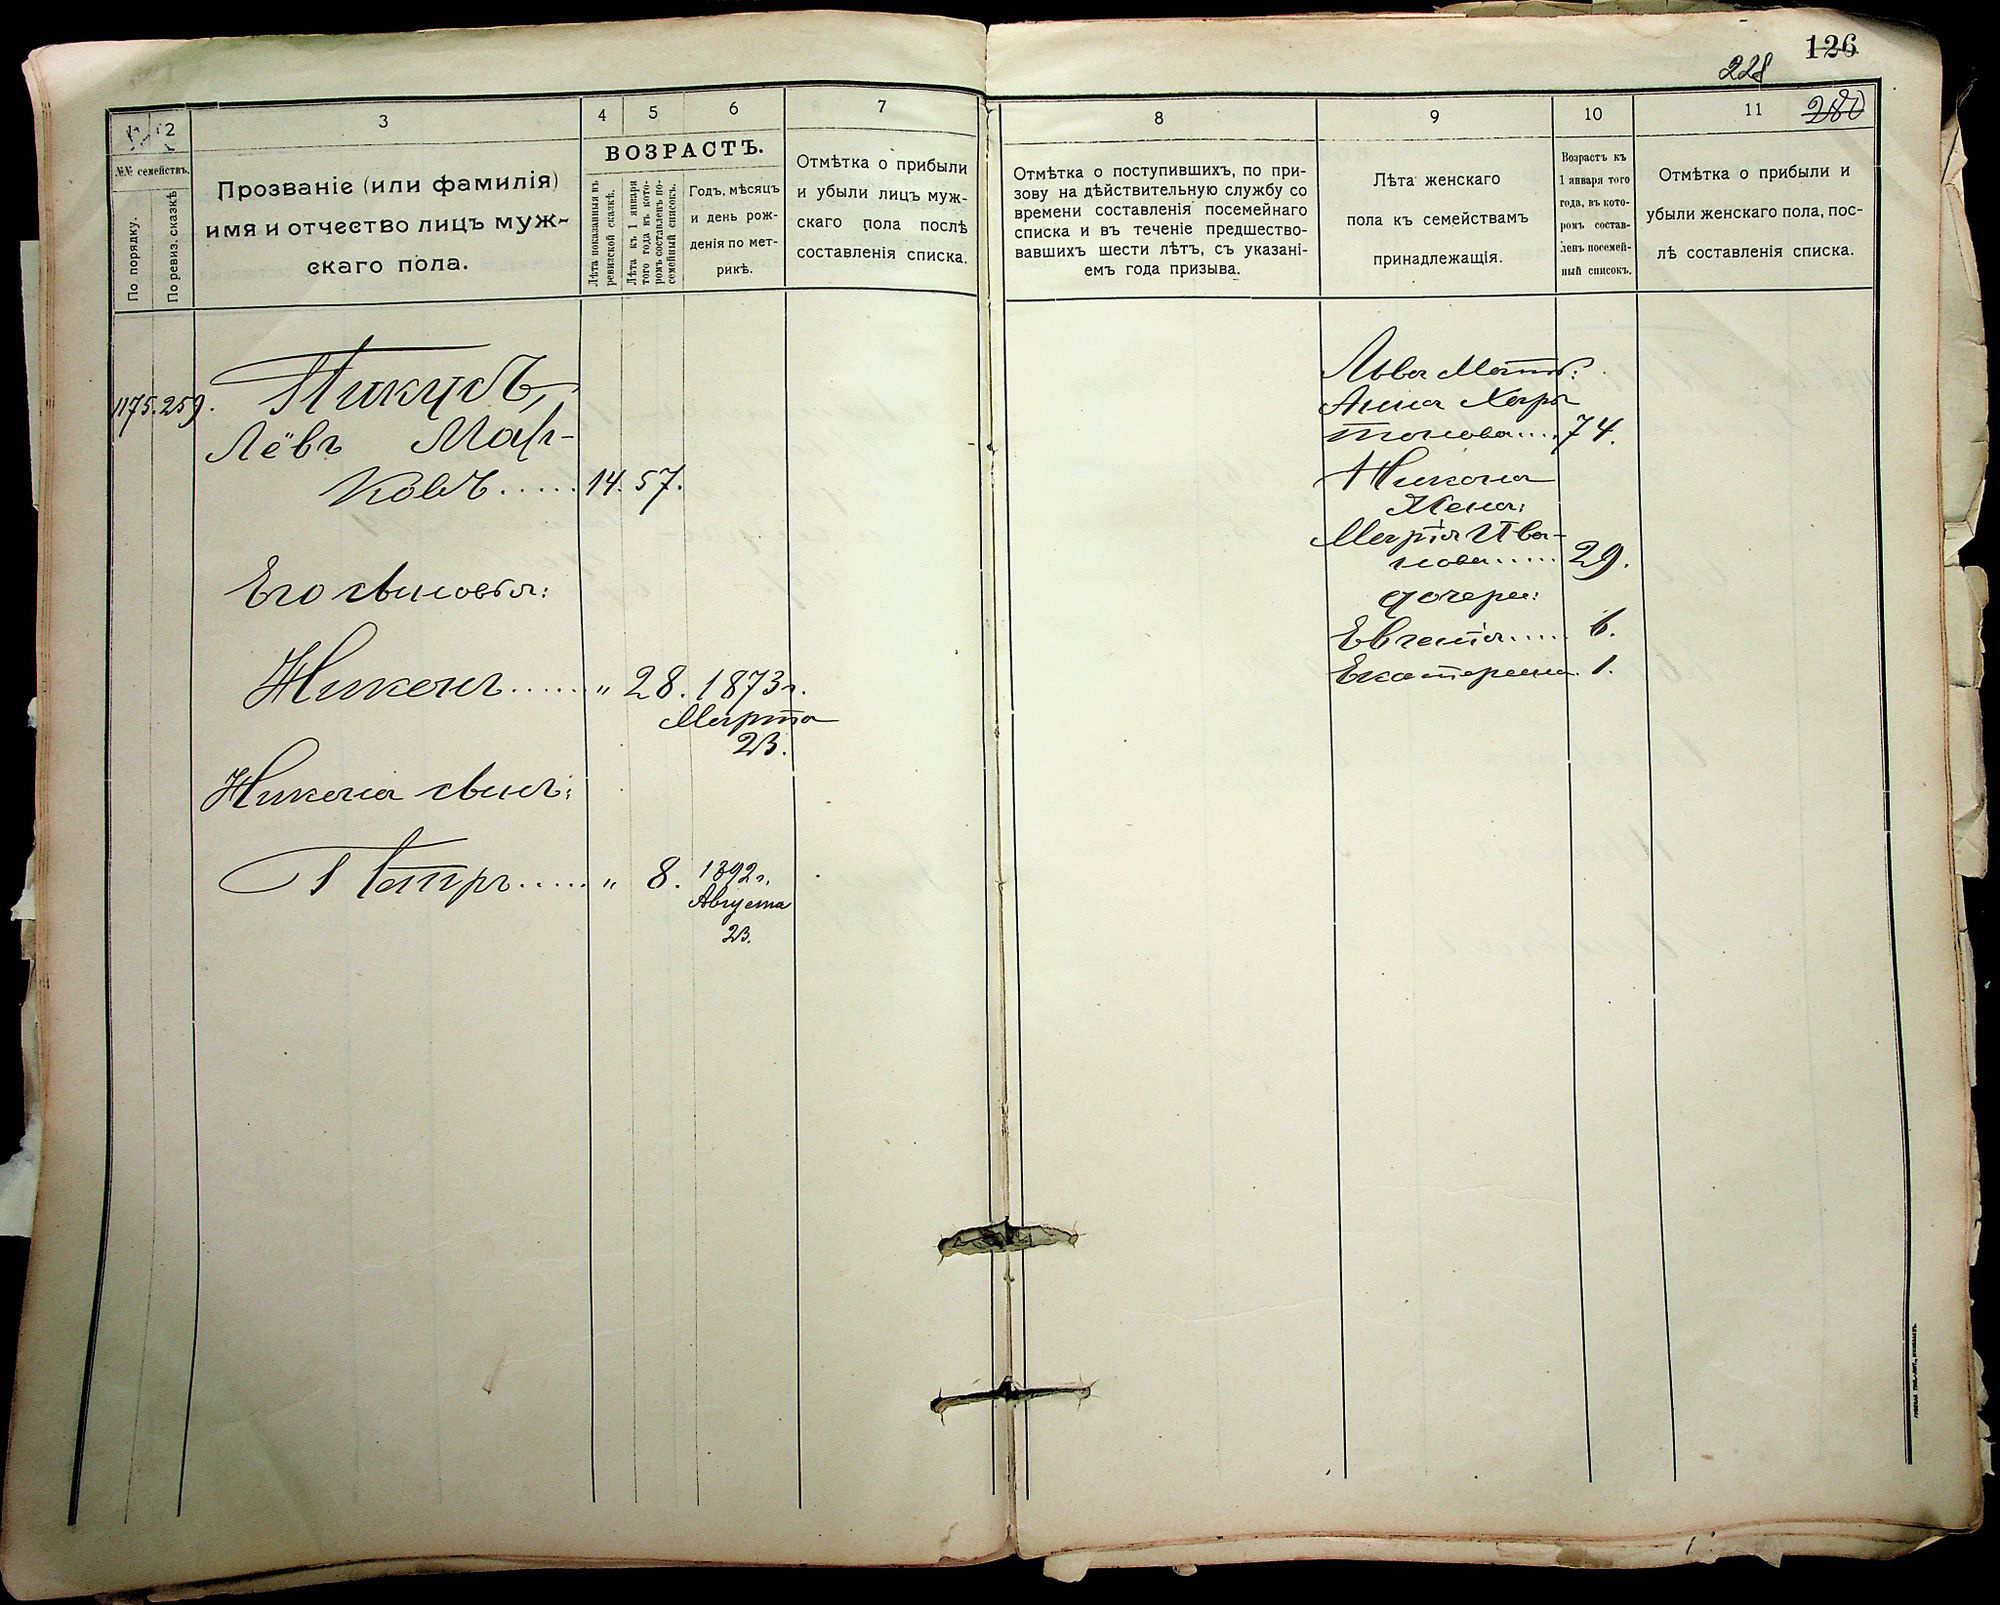 126
228
280
1
2
3
4
5
6
7
№№ семействъ.
По порядку.
По ревиз. сказкѣ
Прозваніе (или фамилія)
имя и отчество лицъ муж-
скаго пола.
ВОЗРАСТЪ.
Лѣта показанныя въ
ревизской сказкѣ.
Лѣта къ 1 января
того года въ кото-
ромъ составленъ по-
семейный списокъ.
Годъ, мѣсяцъ
и день рож-
денія по мет-
рикѣ.
Отмѣтка о прибыли
и убыли лицъ муж-
скаго пола послѣ
составленія списка.
8
9
10
11
Отмѣтка о поступившихъ, по при-
зову на дѣйствительную службу со
времени составленія посемейнаго
списка и въ теченіе предшество-
вавшихъ шести лѣтъ, съ указані-
емъ года призыва.
Лѣта женскаго
пола къ семействамъ
принадлежащія.
Возрастъ къ
1 января того
года, въ кото-
ромъ состав-
ленъ посемей-
ный списокъ.
Отмѣтка о прибыли и
убыли женскаго пола, пос-
лѣ составленія списка.
1175. 259. Пикусъ,
Лёвъ Мар-
ковъ..... 14. 57.
Его сыновья:
Никонъ...... " 28. 1873 г.
Марта
23.
Никона сынъ:
Петръ..... " 8. 1892 г.
Августа
23.
Льва Мать:
Анна Хари
тонова.... 74.
Никона
Жена:
Марія Ива-
нова..... 29.
дочери:
Евгенія..... 6.
Екатерина. 1.